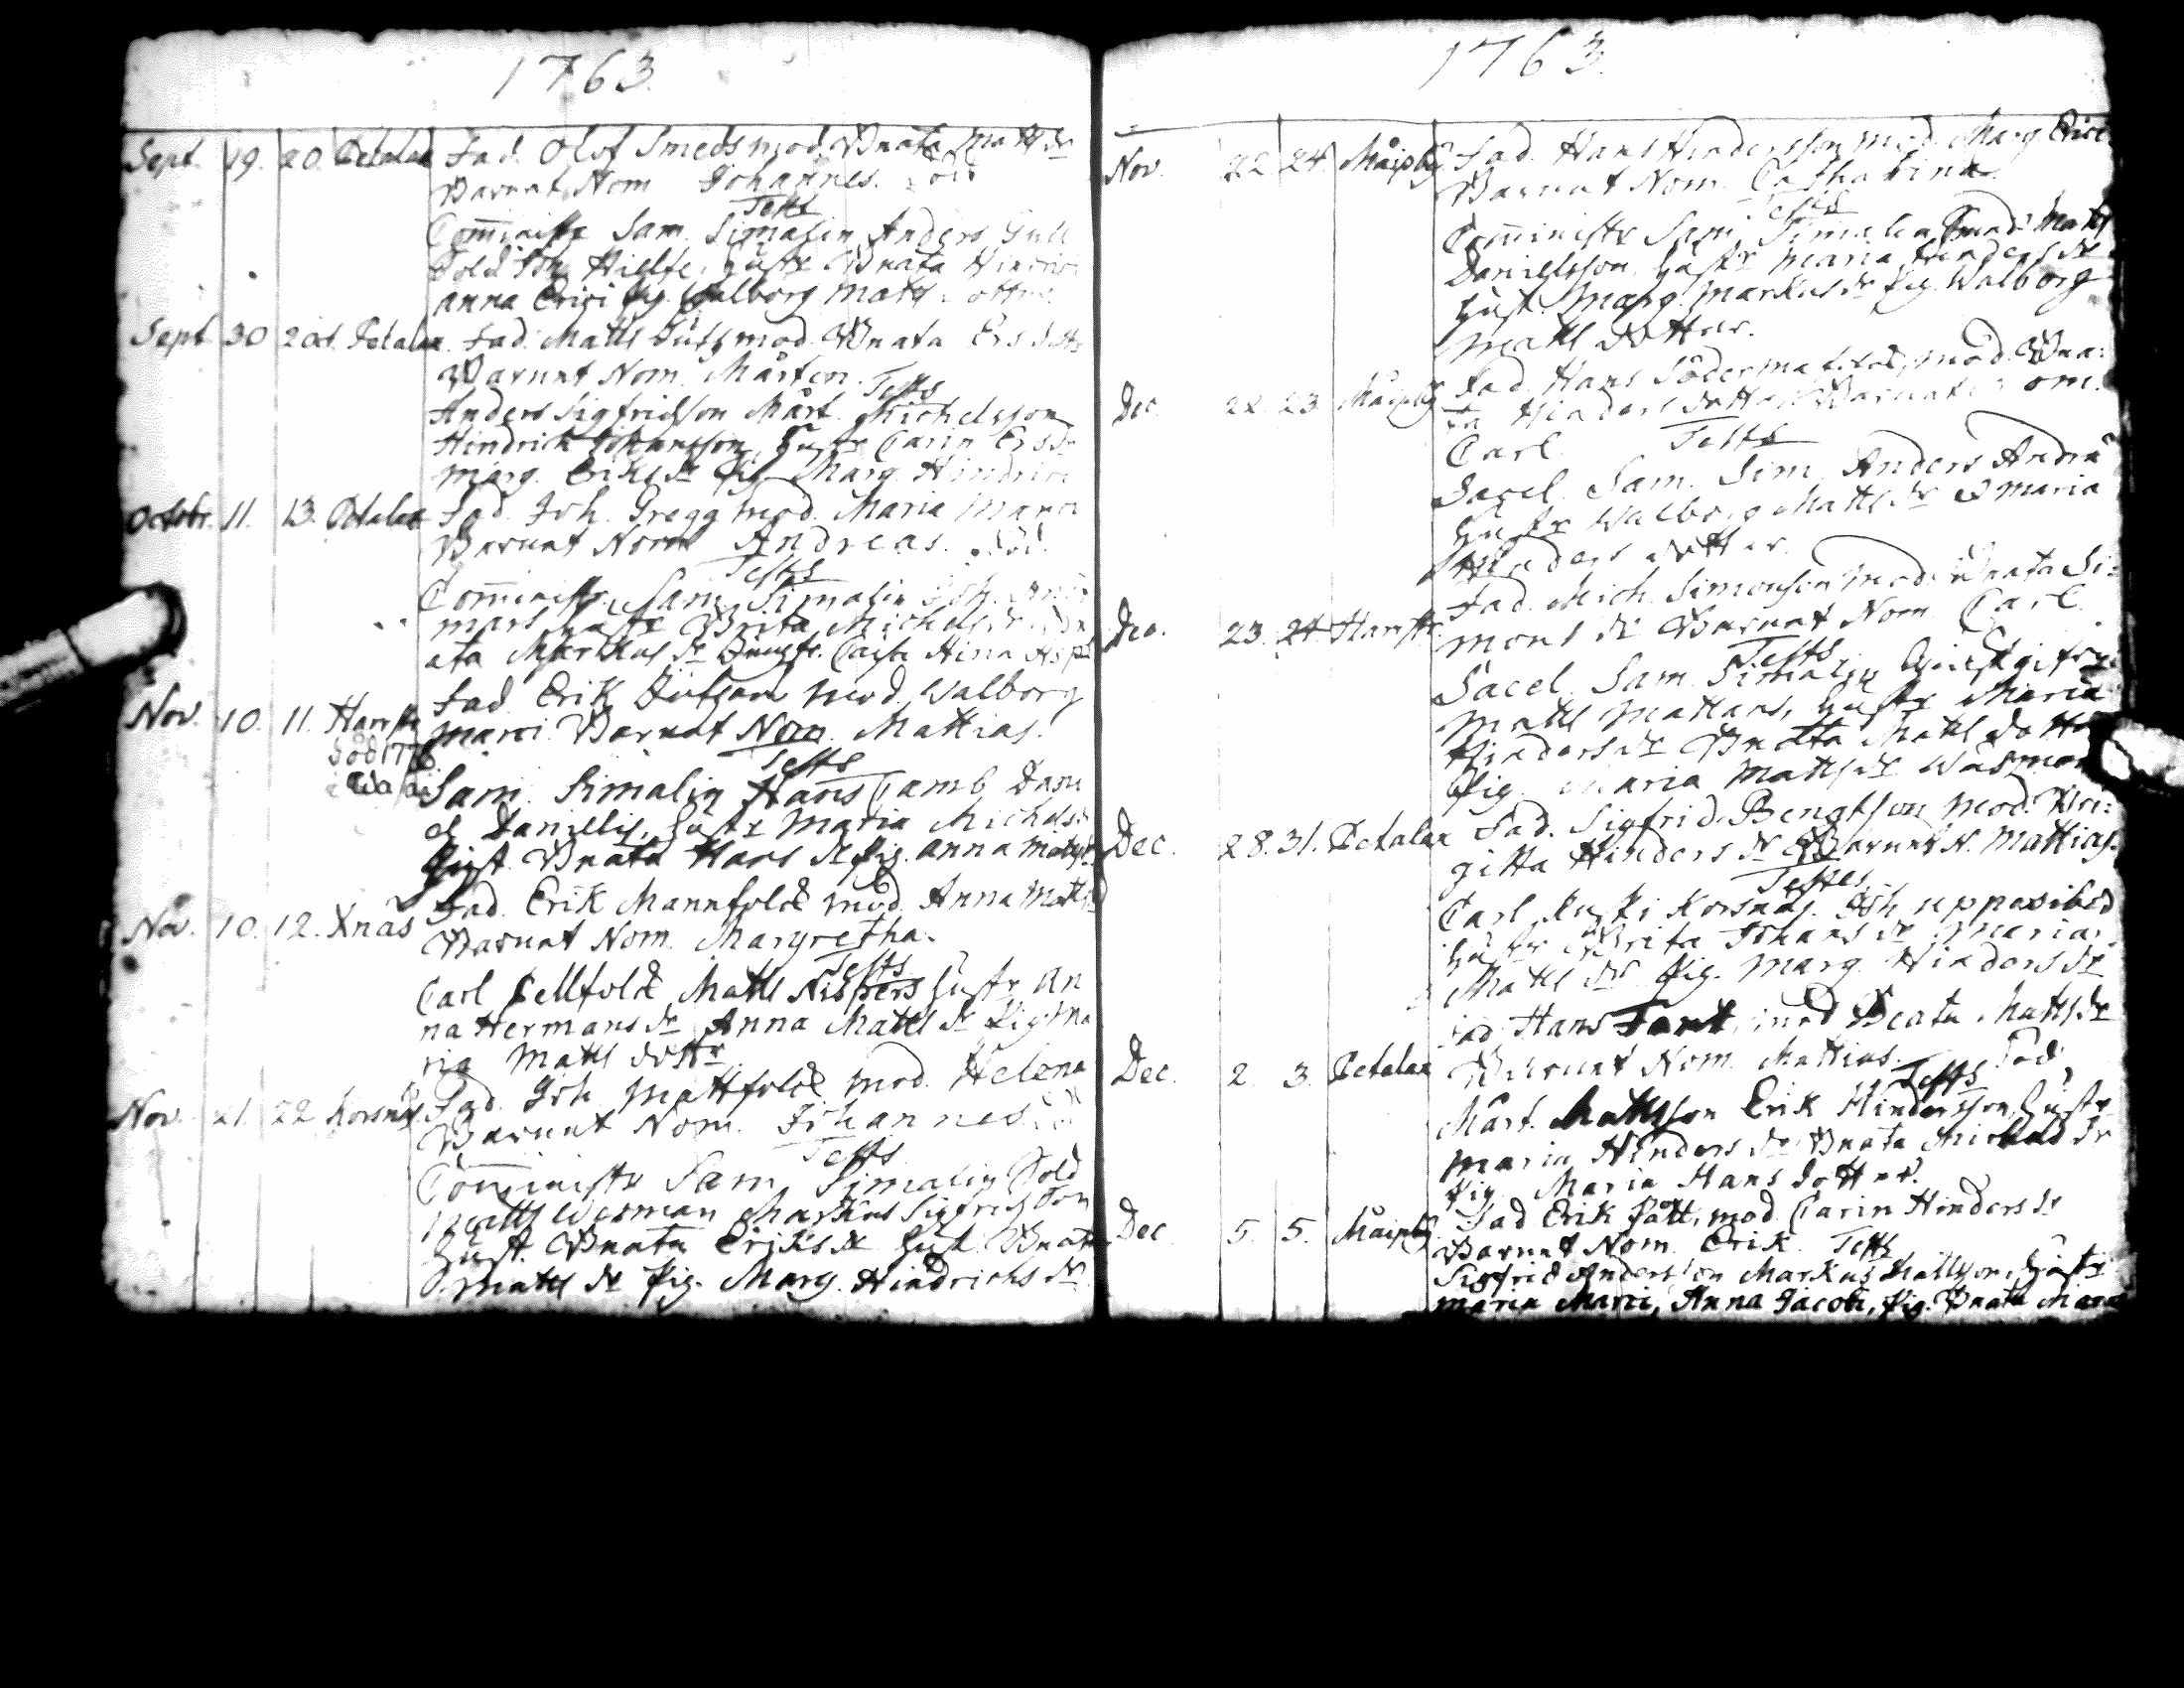 1763.
Sept. 19. 20. Petalax Fad. Olof Smeds mod. Beata Matts dr
Barnet Nom Johannes. död
Testes
Com̄inistr Sam. Simalin Anders Gull
Sold Joh Hielte, hustr Beata Hindrics
Anna Erici Pig. Walborg Matts dotter
Sept 30 2 Oct. Petalax. Fad. Matts mod. Beata Ers dottr
Barnet Nom. Mårten. Testes
Anders Sigfridsson Mårt. Michelsson
Hindrich Johansson, Hustr Carin Ersdr
Marg. Eriks dr Pig. Marg. Hindrics
Octobr. 11. 13. Petalax Fad. Joh. Gregg mod. Maria Marci
Barnet Nom Andreas. död.
Testes
Com̄inistr. Sam. Simalin Joh.
mars hustr Brita Michelsdr
ata Markus dr Caisa
Nov. 10. 11. Harrstr Fad Erik mod. Walborg
död 177 Marci Barnet Nom. Mattias.
Testes
Sam. Simalin Hans Camb Dani
el Danielis, hustr Maria Michelsdr
Hust. Beata Hans dr Pig. Anna Matts
Nov. 10. 12. Xnäs Fad. Erik Mannfolck mod. Anna Matts
Barnet Nom. Margretha.
Testes
Carl Pellfolck Matts Nispers hustr An
na Hermans dr Anna Matts dr Pig. Ma
ria Matts dottr
Nov. 21. 22 Korsnäs Fad. Joh Mattfolck mod. Helena
Barnet Nom. Johannes
Testes
Com̄inistr Sam. Simalin Sold
Matts Werman Markus Sigfridsson
Hust. Beata Eriks dr Hust Beata
Matts dr Pig. Marg. Hindrichs dr
1763.
Nov. 22 24. Måipby Fad. Hans Hindersson mod. Marg Erics
Barnet Nom. Catharina.
Testes
Com̄inistr Sam Simalin Matts
Danielsson, hustr Maria Hinders dr
Hust. Marg. Markus dr Pig. Walborg
Matts dotter.
Dec. 22. 23. Måipby Fad. Hans Södermatts, mod. Bea:
ta Hinders dotter Barnet Nom.
Carl. Testes
Sacel. Sam. Sim. Anders Andrä
Hustr Walborg Matts dr & Maria
Hinders dotter.
Dec. 23. 24 Harrstr. Fad. Mich. Simonsson mod. Beata Si=
mons dr Barnet Nom Carl.
Testes
Sacel. Sam. Simalin
Matts Mattans, hustr Maria
Hinders dr Beata Matts dotter
Pig. Maria Matts dr
Dec. 28. 31. Petalax Fad. Sigfrid Bengtsson mod. Bri:
gitta Hinders dr Barnet N. Mattias.
Testes
Carl Korsnäs. Joh
hustr Brita Johans dr Maria
Matts dr Pig. Marg. Hinders dr
Dec. 2. 3. Petalax Fad. Hans mod Beata Matts dr
Barnet Nom. Mattias. död,
Testes
Mårt. Mattsson Erik Hindersson, hustr
Maria Hinders dr Beata Michels dr
Pig. Maria Hans dotter.
Dec. 5. 5. Måipby Fad Erik Pått, mod. Carin Hinders dr
Barnet Nom. Erik. Testes
Sigfrid Andersson Markus Mattsson, hustr
Maria Marci, Anna Jacobi, Pig. Beata Marci